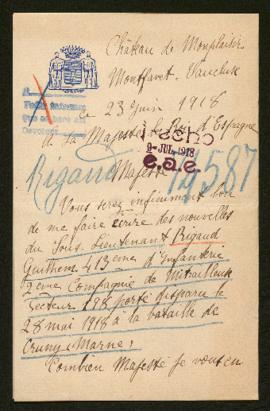 Château de Monplaisir
Montfavet - Vaucluse
23 Juin 1918
A Sa Majesté le Roi d'Espagne
HECHO
9- JUL. 1918
e.a.e.
Rigaud
Majesté
14587
Vous serez infiniment bon
de me faire écrire des nouvelles
du Sous-Lieutenant Rigaud
413ème d'Infanterie
2ème Compagnie de Mitrailleuse
Secteur 198 porté disparu le
28 mai 1918 à la bataille de
Crugny Marne,
Combien Majesté je vous en